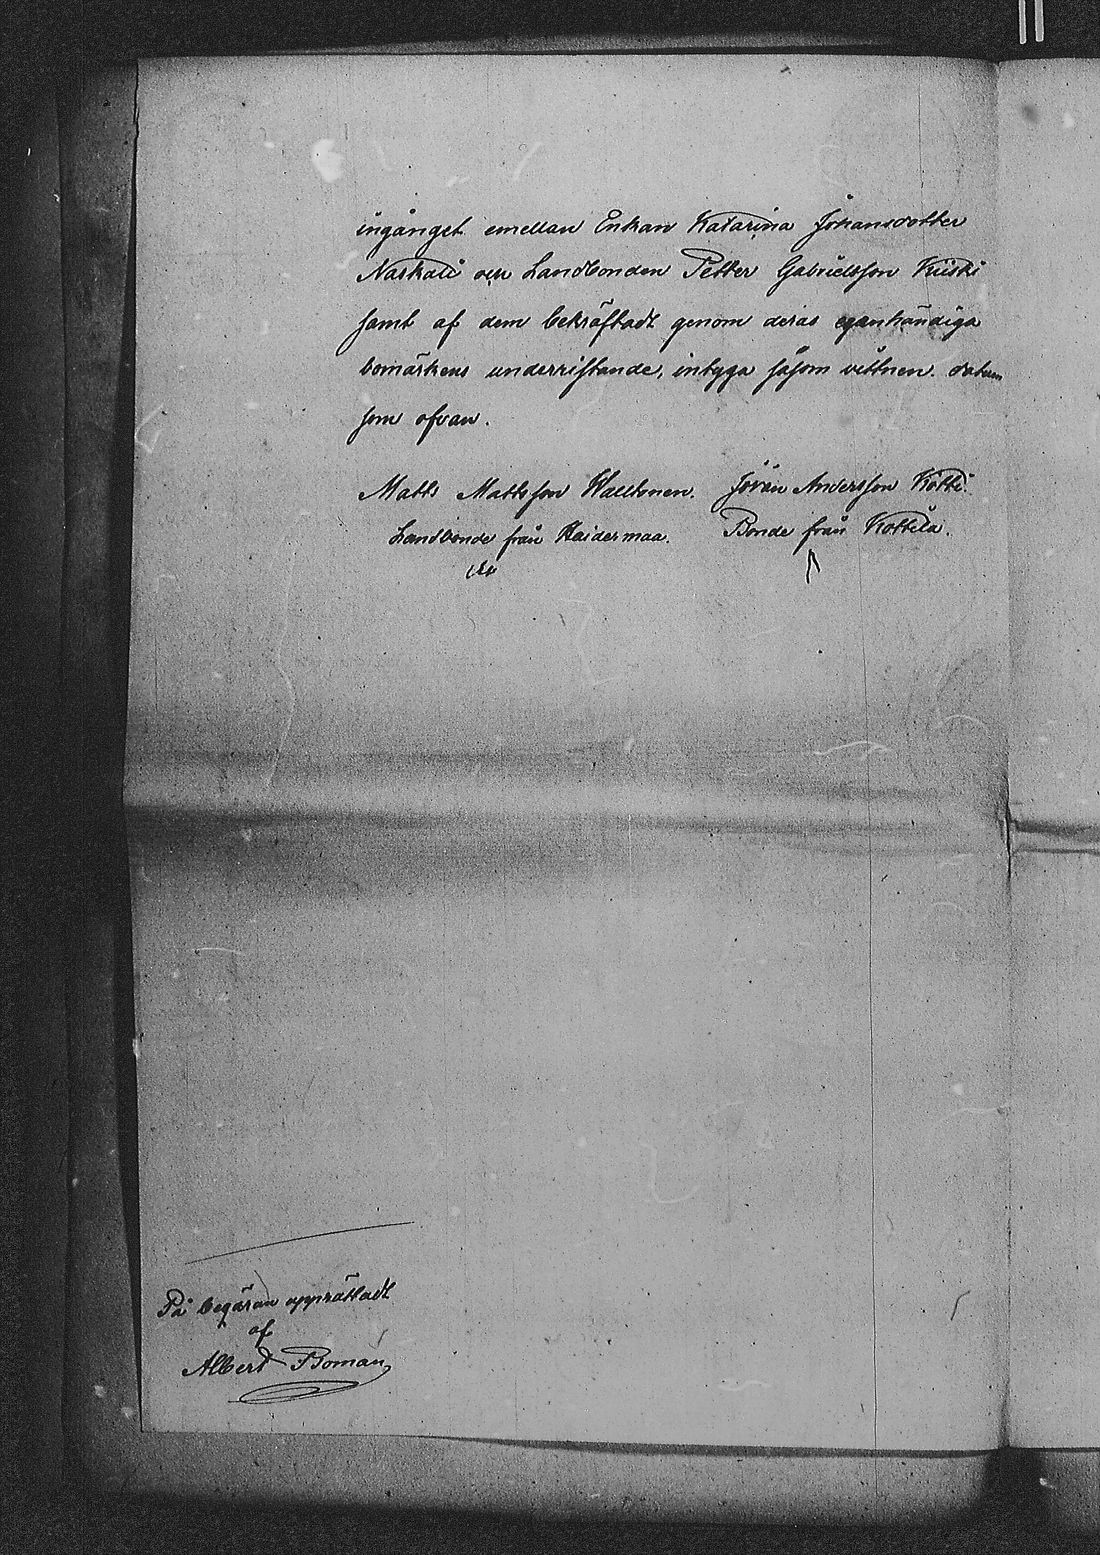 ingånget emellan Enkan Katarina Johansdotter
Naskali och Landbonden Petter Gabrielsson Kiiski
samt af dem bekräftadt genom deras egenhändiga
bomärkens underristande, intyga såsom vittnen. datum
som ofvan.
Matts Mattsson Walltonen. Jöran Andersson Kötti.
Landbonde från Haidermaa. Bonde från Kottila.
På begäran upprättadt
af
Albert Boman